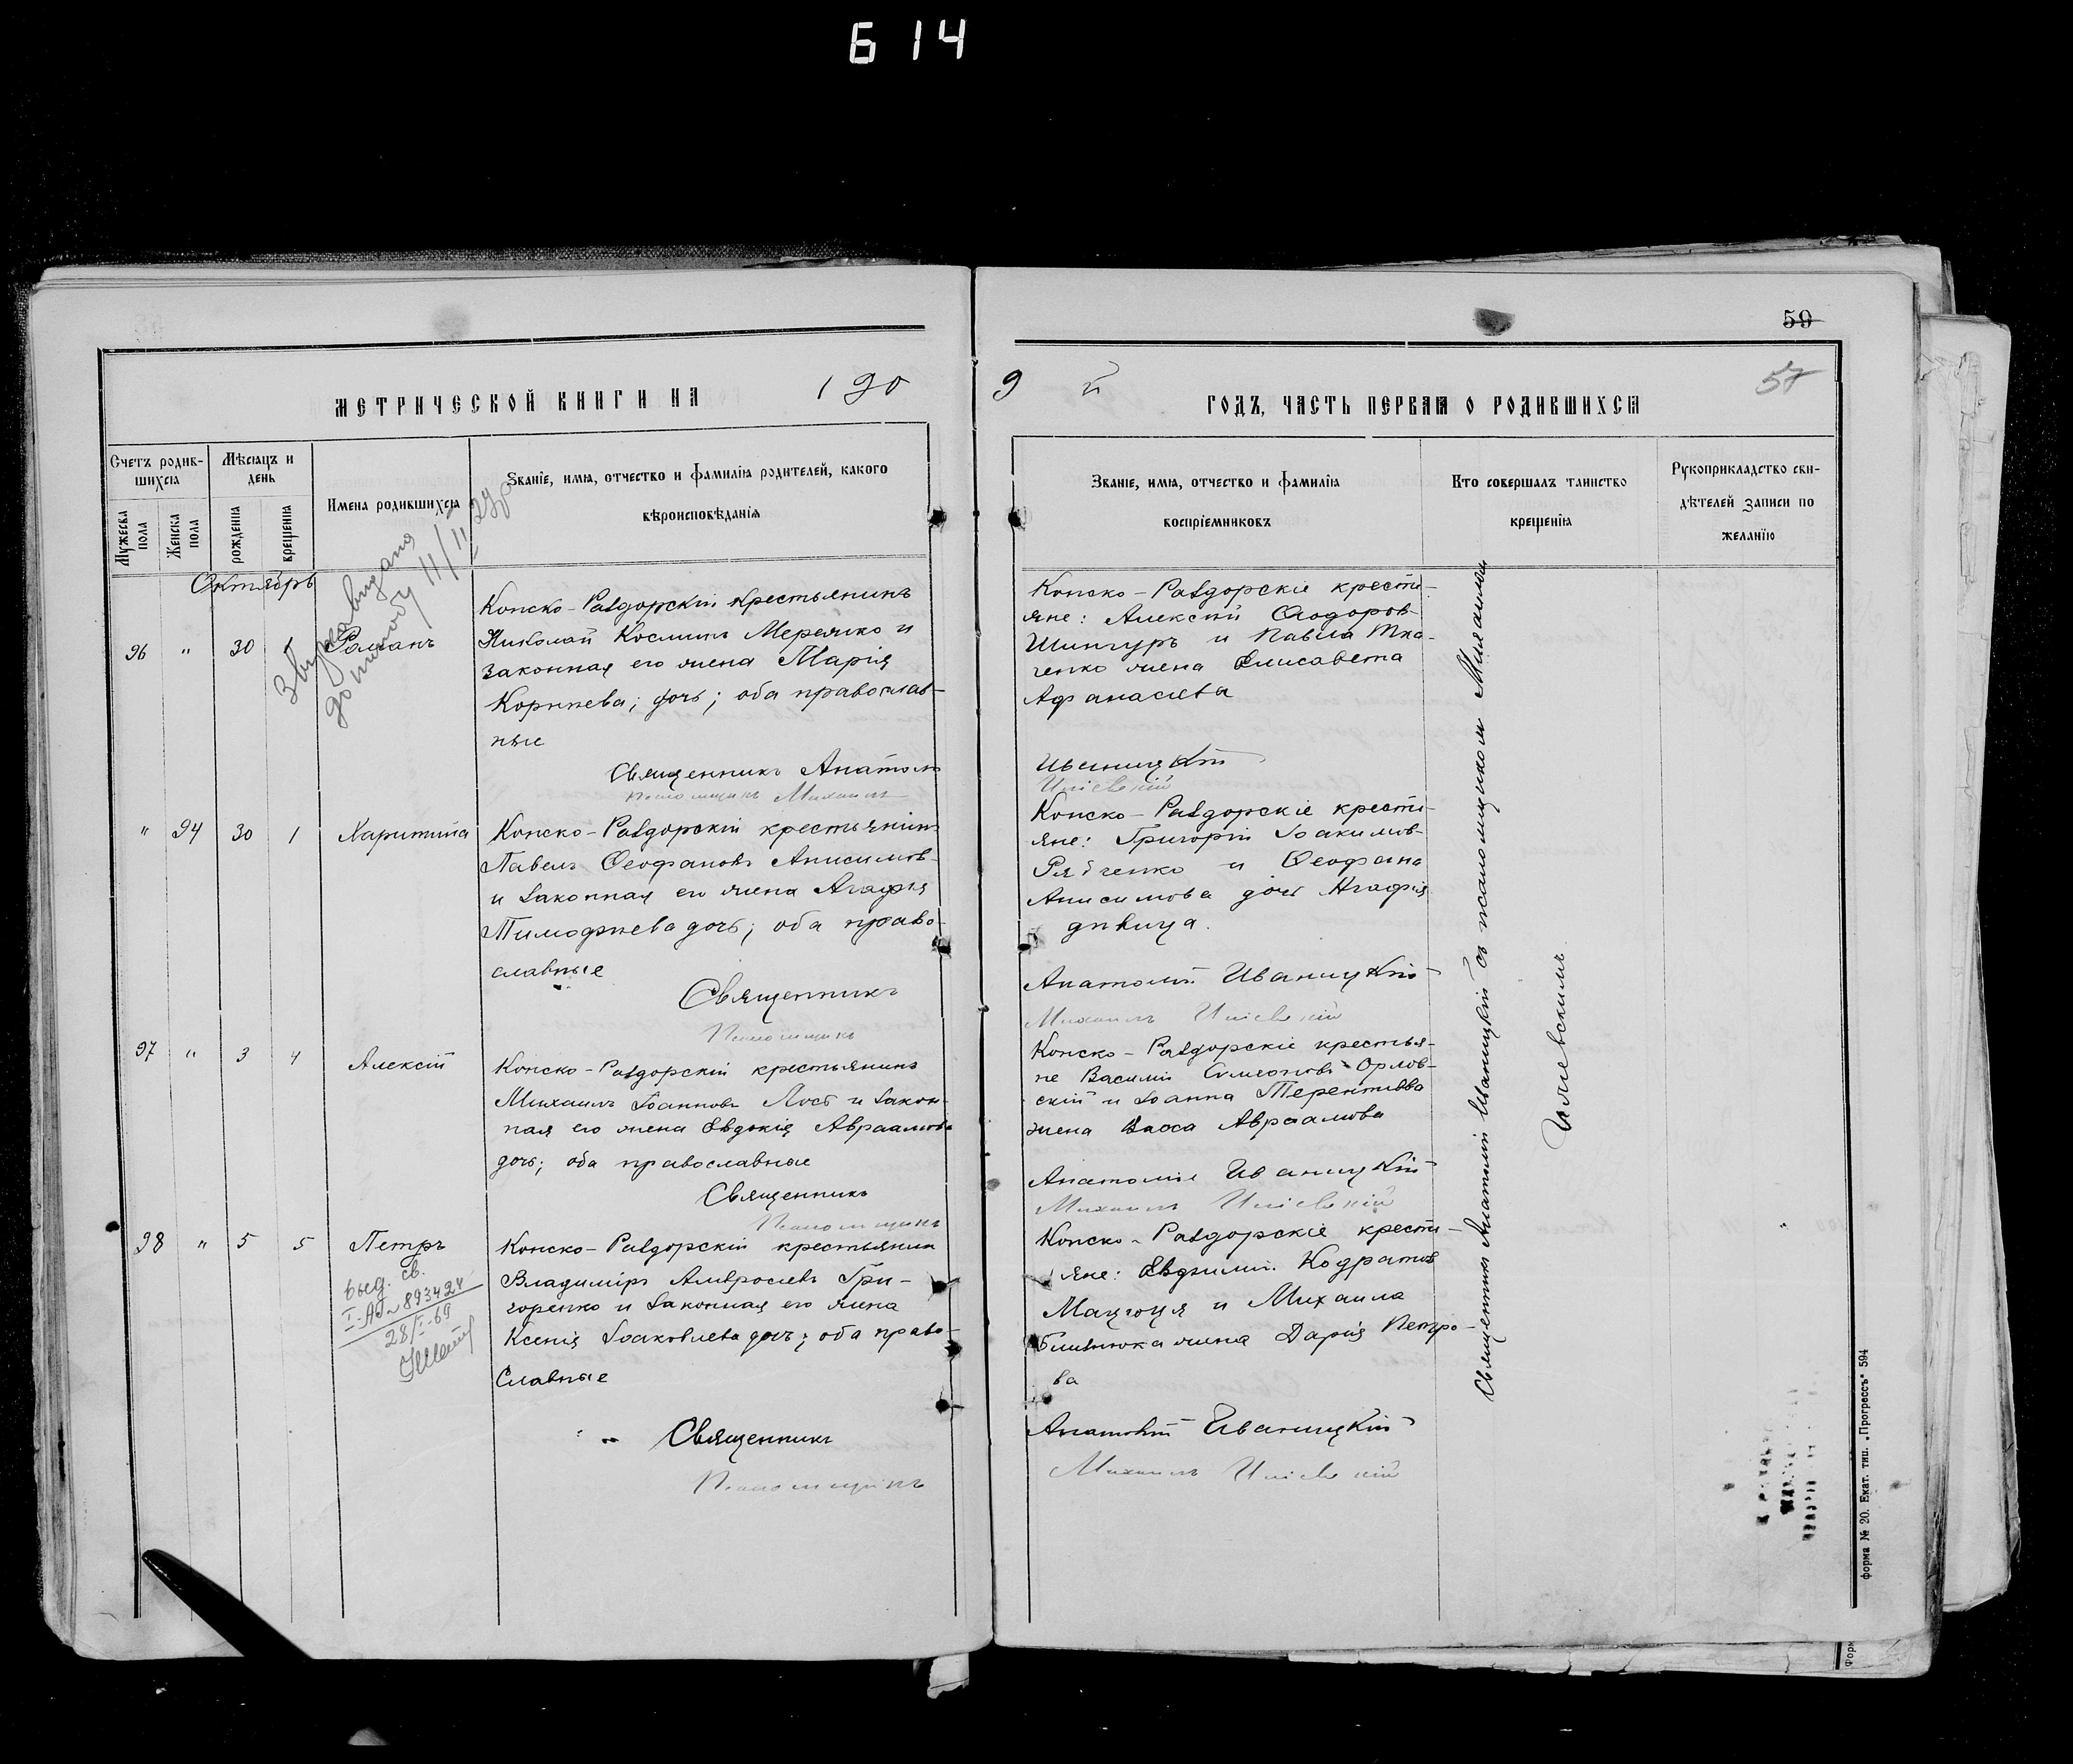 614
59
57
МЕТРИЧЕСКОЙ КНИГИ НА 190
9 й ГОДЪ, ЧАСТЬ ПЕРВАЯ О РОДИВШИХСЯ
Счетъ родив-
шихся
Мѣсяцъ и
день
Мужеска
пола
Женска
пола
рожденія
крещенія
Имена родившихся
Званіе, имя, отчество и фамилія родителей, какого
вѣроисповѣданія
Званіе, имя, отчество и фамилія
воспріемниковъ
Кто совершалъ таинство
крещенія
Рукоприкладство сви-
дѣтелей записи по
желанію
Октябрь
11/II 29р
96 " 30 1 Романъ
Конско-Раздорскій крестьянинъ
Николай Косминъ Мережко и
законная его жена Марія
Корнѣева; дочь; оба православ-
ные
Священникъ Анатолій
Псаломщикъ Михаилъ
Конско-Раздорскіе крестья-
яне: Алексій Ѳеодоров
Шингуръ и Павла Тка-
ченко жена Елисавета
Афанасіева
Иваницкій
Иліевскій
" 94 30 1 Харитина
Конско-Раздорскій крестьянинъ
Павелъ Ѳеофановъ Анисимов
и законная его жена Агафія
Тимофѣева дочь; оба право-
славные
Священникъ
Псаломщикъ
Конско-Раздорскіе крестья-
яне: Григорій Іоакимов
Рябченко и Ѳеофана
Анисимова дочь Агафія
дѣвица.
Анатолій Иваницкій
Михаилъ Иліевскій
97 " 3 4 Алексій
Конско-Раздорскій крестьянинъ
Михаилъ Іоанновъ Лосъ и закон-
ная его жена Евдокія Авраамова
дочь; оба православные
Священникъ
Псаломщикъ
Конско-Раздорскіе крестья-
не Василій Симеоновъ Орлов-
скій и Іоанна Терентьева
жена Васса Авраамова
Анатолій Иваницкій
Михаилъ Иліевскій
98 " 5 5 Петръ
выд. св.
I-АБ № 893424
28/I-69
Конско-Раздорскій крестьянинъ
Владиміръ Амвросіевъ Гри-
горенко и законная его жена
Ксенія Іоаковлева дочь; оба право-
славные
Священникъ
Псаломщикъ
Конско-Раздорскіе крестья-
яне: Евфимій Кодратов
Мацюця и Михаила
Блинюка жена Дарія Петро-
ва
Анатолій Иваницкій
Михаилъ Иліевскій
Священникъ Анатолій Иваницкій съ псаломщикомъ Михаиломъ
Иліевскимъ
Форма № 20. Екат. тип. „Прогрессъ" 594